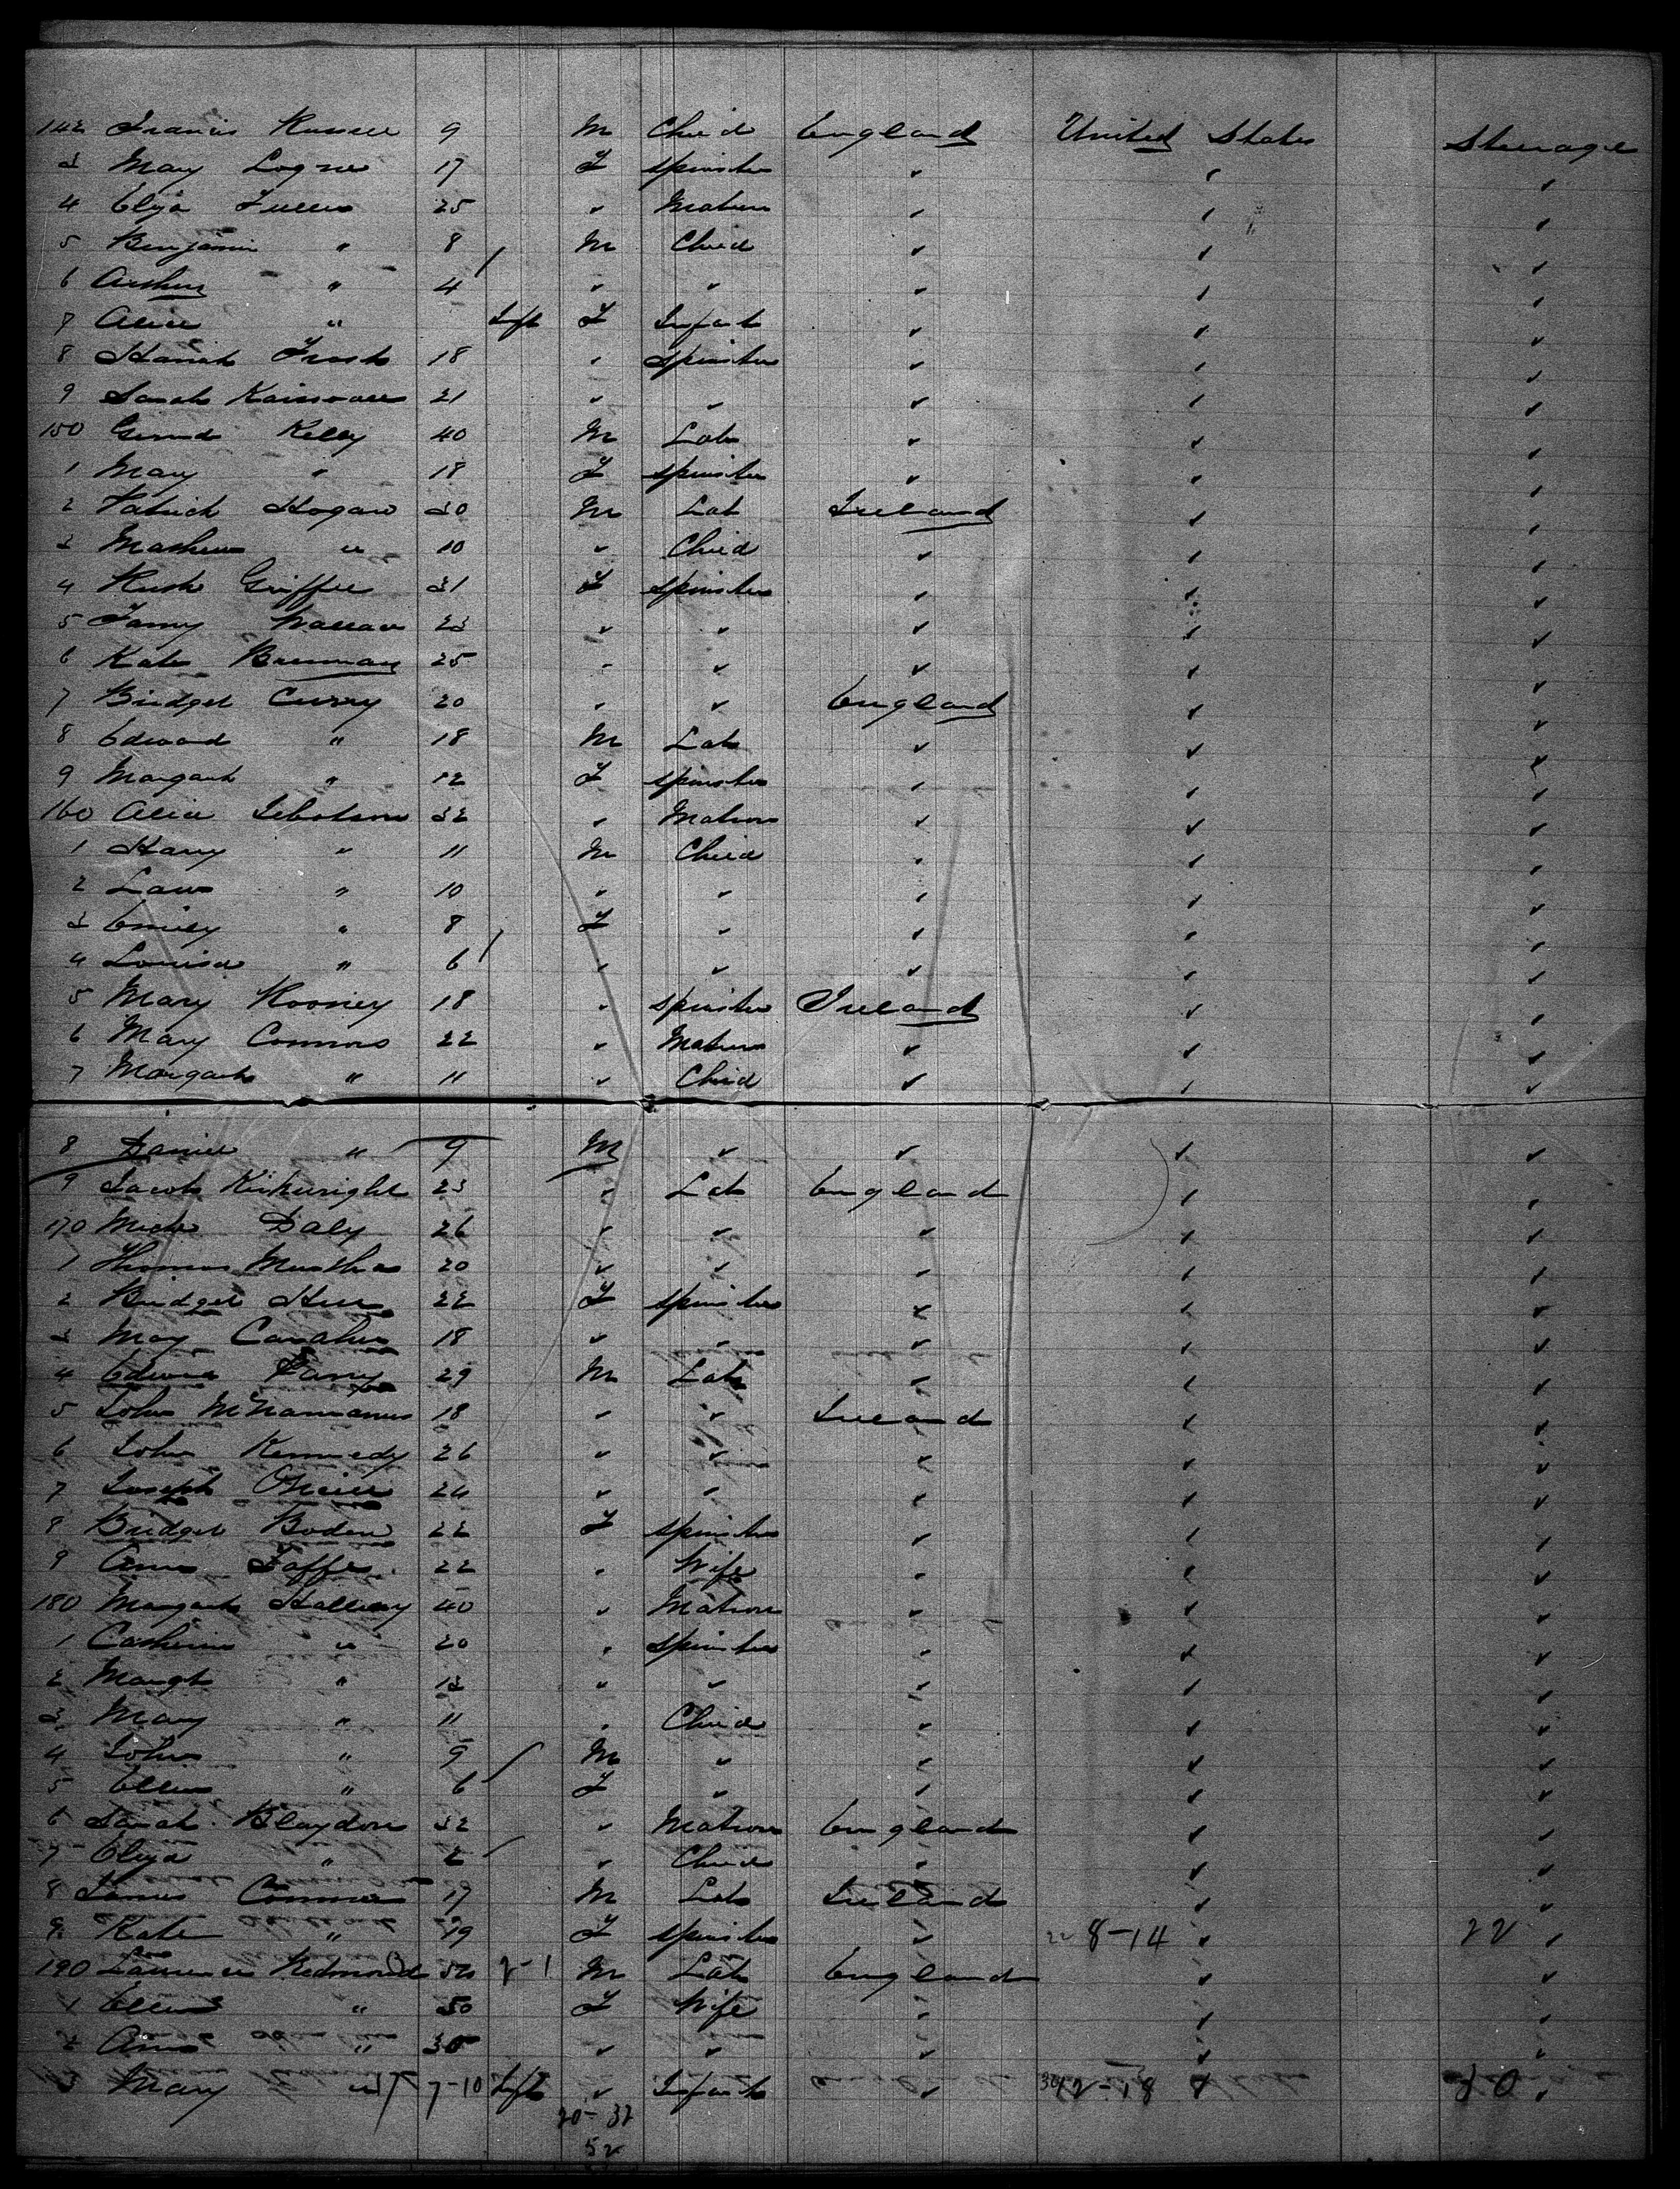 142 Francis Russell 9 M Child England United States Steerage
3 Mary Logne 17 F Spinster ✓ ✓ ✓
4 Eliza 25 " Matron ✓ ✓ ✓
5 Benjamin " 8 M Child ✓ ✓ ✓
6 Arthur " 4 " " ✓ ✓ ✓
7 Alice " Inft F Infant ✓ ✓ ✓
8 Hanah Frost 18 " Spinster ✓ ✓ ✓
9 Sarah 21 " " ✓ ✓ ✓
150 Kelly 40 M Lab ✓ ✓ ✓
1 Mary " 18 F Spinster ✓ ✓ ✓
2 Patrick Hogan 30 M Lab Ireland ✓ ✓
3 Mathew " 10 " Child ✓ ✓ ✓
4 31 F Spinster ✓ ✓ ✓
5 Fanny Wallace 23 " " ✓ ✓ ✓
6 Kate Brennan 25 " " ✓ ✓ ✓
7 Bridget Curry 20 " " England ✓ ✓
8 Edward " 18 M Lab ✓ ✓ ✓
9 Margaret " 12 F Spinster ✓ ✓ ✓
160 Alice Ibbotson 32 " Matron ✓ ✓ ✓
1 Harry " 11 M Child ✓ ✓ ✓
2 " 10 " " ✓ ✓ ✓
3 Emily " 8 F " ✓ ✓ ✓
4 Louisa " 6 " " ✓ ✓ ✓
5 Mary Rooney 18 " Spinster Ireland ✓ ✓
6 Mary Connors 22 " Matron ✓ ✓ ✓
7 Margaret " 11 " Child ✓ ✓ ✓
8 Daniel " 9 M " ✓ ✓ ✓
9 Jacob Kirkwright 23 " Lab England ✓ ✓
170 Daly 26 " " ✓ ✓ ✓
1 Thomas 20 " " ✓ ✓ ✓
2 Bridget 22 F Spinster ✓ ✓ ✓
3 May 18 " " ✓ ✓ ✓
4 Edward 29 M Lab ✓ ✓ ✓
5 John 18 " " Ireland ✓ ✓
6 John Kennedy 26 " " ✓ ✓ ✓
7 Joseph 24 " " ✓ ✓ ✓
8 Bridget Boden 22 F Spinster ✓ ✓ ✓
9 22 " Wife ✓ ✓ ✓
180 Margaret 40 " Matron ✓ ✓ ✓
1 Catherine " 20 " Spinster ✓ ✓ ✓
2 Margt " " " ✓ ✓ ✓
3 Mary " 11 " Child ✓ ✓ ✓
4 John " 9 M " ✓ ✓ ✓
5 Ellen " 6 F " ✓ ✓ ✓
6 Sarah Blaydon 32 " Matron England ✓ ✓
7 Eliza " 2 " Child ✓ ✓ ✓
8 James Connor 17 M Lab Ireland ✓ ✓
9 Kate " 19 F Spinster ✓ 8-14 ✓ 22 ✓
190 Redmond 2-1 M Lab England ✓ ✓
1 Ellen " 50 F Wife ✓ ✓ ✓
2 " 30 " " ✓ ✓ ✓
3 Mary " 7-10 Inft " Infant ✓ 12-18 ✓ 30 ✓
20-32
52